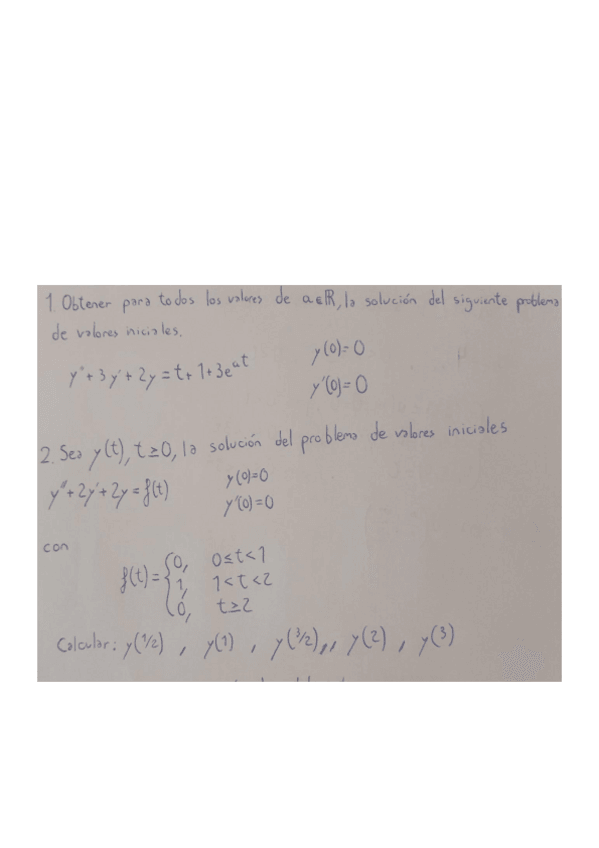 1. Obtener para todos los valores de a∈ℝ, la solución del siguiente problema
de valores iniciales.
y''+3y'+2y=t+1+3e^{at}
y(0)=0
y'(0)=0
2. Sea y(t), t≥0, la solución del problema de valores iniciales
y''+2y'+2y=f(t)
y(0)=0
y'(0)=0
con
f(t)={0, 0≤t<1
1, 1<t<2
0, t≥2
Calcular: y(1/2) , y(1) , y(3/2),, y(2) , y(3)